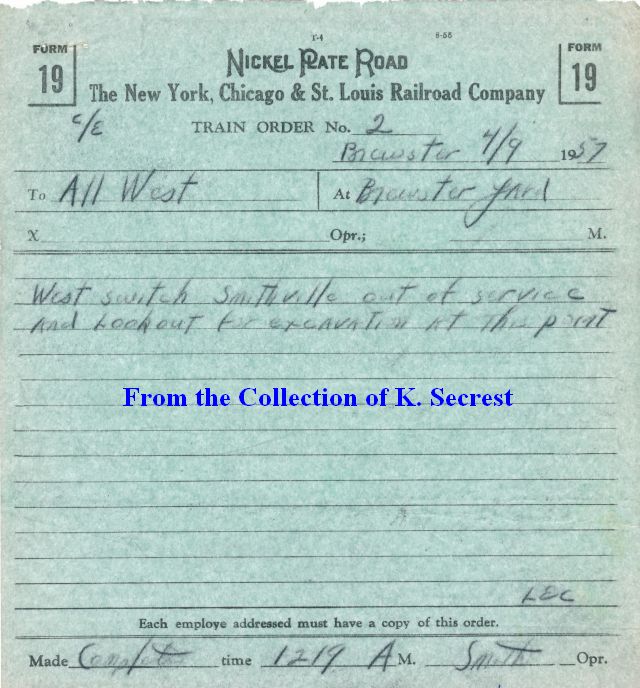 T-4 8-55
FORM 19 NICKEL PLATE ROAD FORM 19
The New York, Chicago & St. Louis Railroad Company
C/E TRAIN ORDER No. 2
Brewster 4/9 1957
To All West At Brewster Yard
X Opr.; M.
West switch Smithville out of service
and Lookout for excavation at this point
From the Collection of K. Secrest
LEC
Each employe addressed must have a copy of this order.
Made Complete time 1219 A M. Smith Opr.